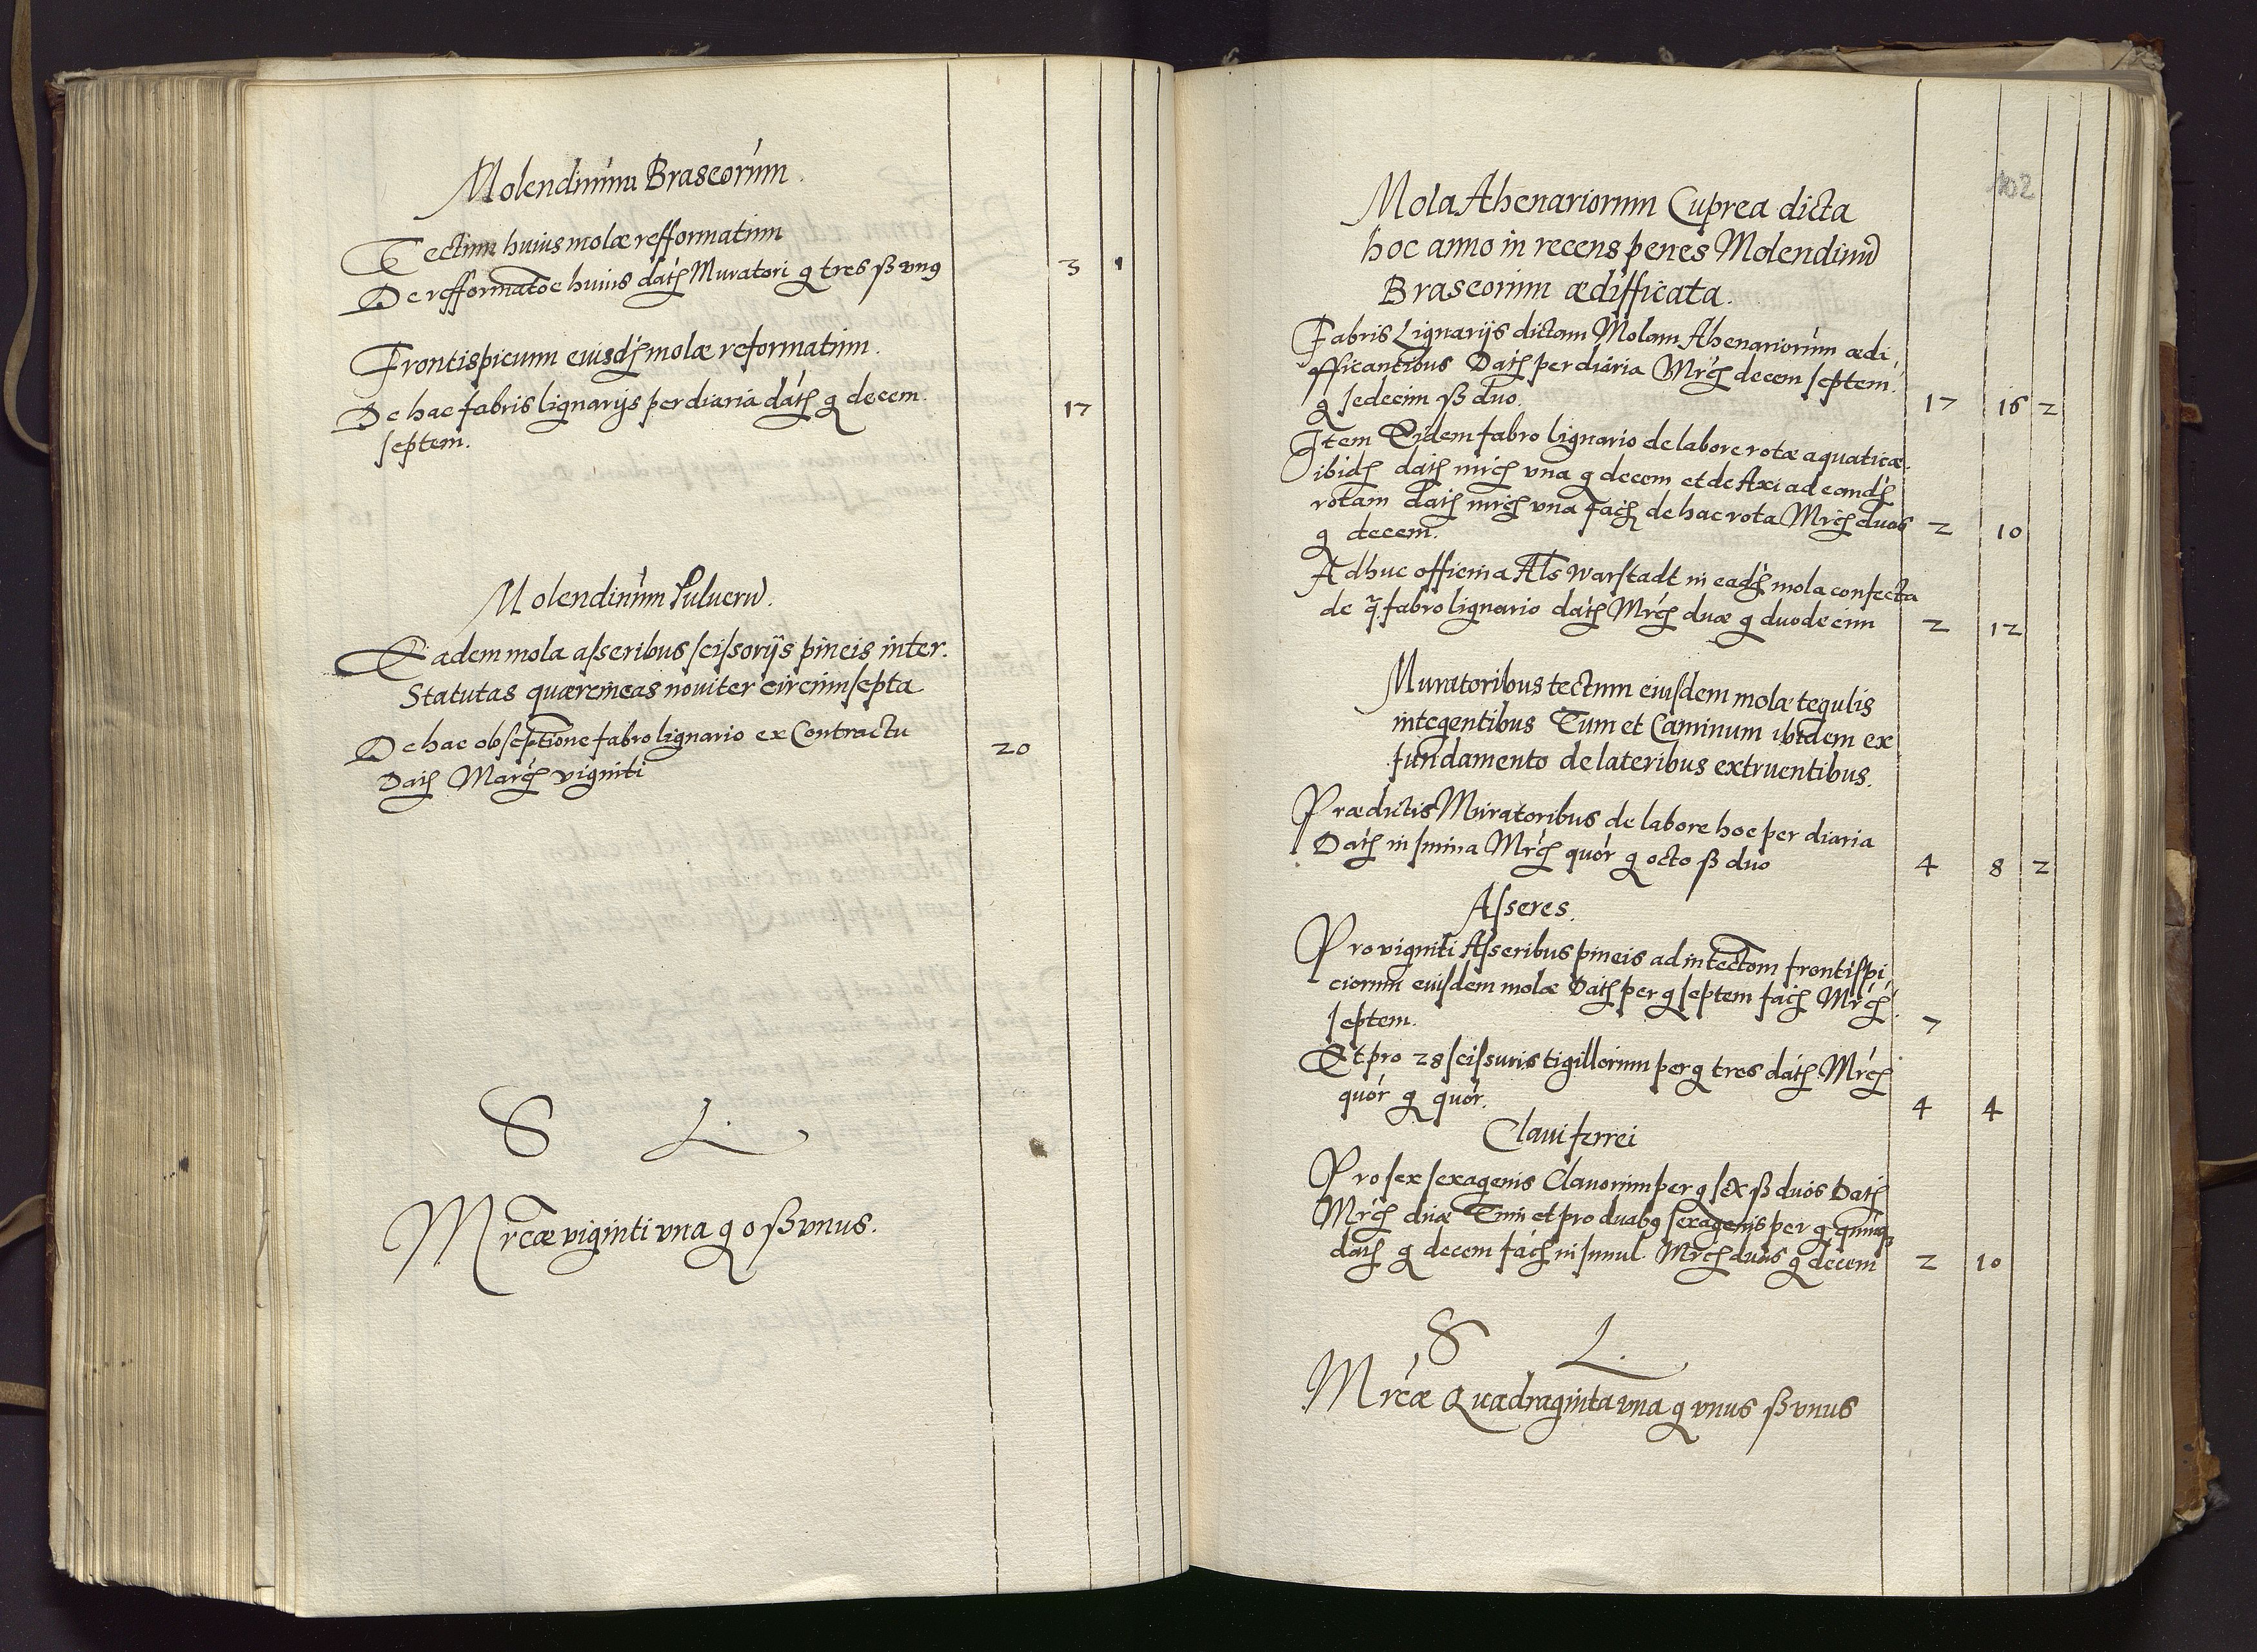 Molendinum Braseorum.
Tectum huius molæ refformatum
De refformatõe huius datȝ Muratori g tres ß vnꝰ 3 1
Frontispicum eiusdȝ molæ reformatum.
De hac fabris lignarijs per diaria datȝ g decem 17
septem.
Molendinum Puluerũ.
Eadem mola asseribus scissorijs pineis inter.
Statutas quærcineas noviter circumsepta
De hac obseptione fabro lignario ex Contractu 20
Datȝ Marcȝ vigniti
S L.
Mrcæ viginti vna g 0 ß vnus.
102
Mola Ahenariorum Cuprea dicta
hoc anno in recens penes Molendinũ
Braseorum ædifficata.
Fabris Lignarijs dictam Molam Ahenariorum ædi,
fficantibus Datȝ per diaria Mrcȝ decem septem
g sedecim ß duo. 17 16 2
Item Eidem fabro lignario de labore rotæ aquaticæ.
ibidȝ datȝ mrcȝ vna g decem et de Axi ad eandȝ
rotam datȝ mrcȝ vna facȝ de hac rota Mrcȝ duas
g decem. 2 10
Adhuc officina Als Warstadt in eadȝ mola confecta
de q̃ fabro lignario datȝ Mrcȝ duæ g duodecim 2 12
Muratoribus tectum eiusdem molæ tegulis
integentibus Tum et Caminum ibidem ex
fundamento de lateribus extruentibus.
Prædictis Muratoribus de labore hoc per diaria
Datȝ in sm̃a Mrcȝ quór g octo ß duo 4 8 2
Asseres.
Pro vigniti Asseribus pineis ad intectom frontispi,
ciorum eiusdem molæ Datȝ per g septem facȝ Mrcȝ
septem. 7
Et pro 28 scissuris tigillorum per g tres datȝ Mrcȝ
quór g quór. 4 4
Claui ferrei
Pro sex sexagenis Clauorum per g sex ß duos Datȝ
Mrcȝ duæ Tum et pro duabꝰ sexagenis per g quinqȝ
datȝ g decem facȝ in simul Mrcȝ duas g decem 2 10
S L.
Mrcæ Quadraginta vna g vnus ß vnus